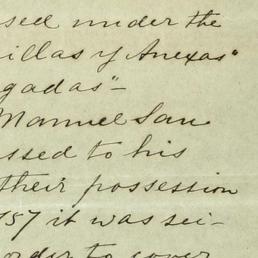 sed under the
illas y Anexas"
gadas"-
Manuel San
ssed to his
their possession
157 it was sei-
order to cover